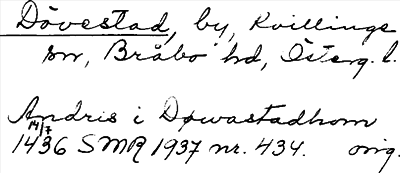 Dövestad, by, Kvillinge
sn, Bråbo hd, Österg. l.
Andris i Døwastadhom
14/7
1436 SMR 1937 nr. 434. orig.